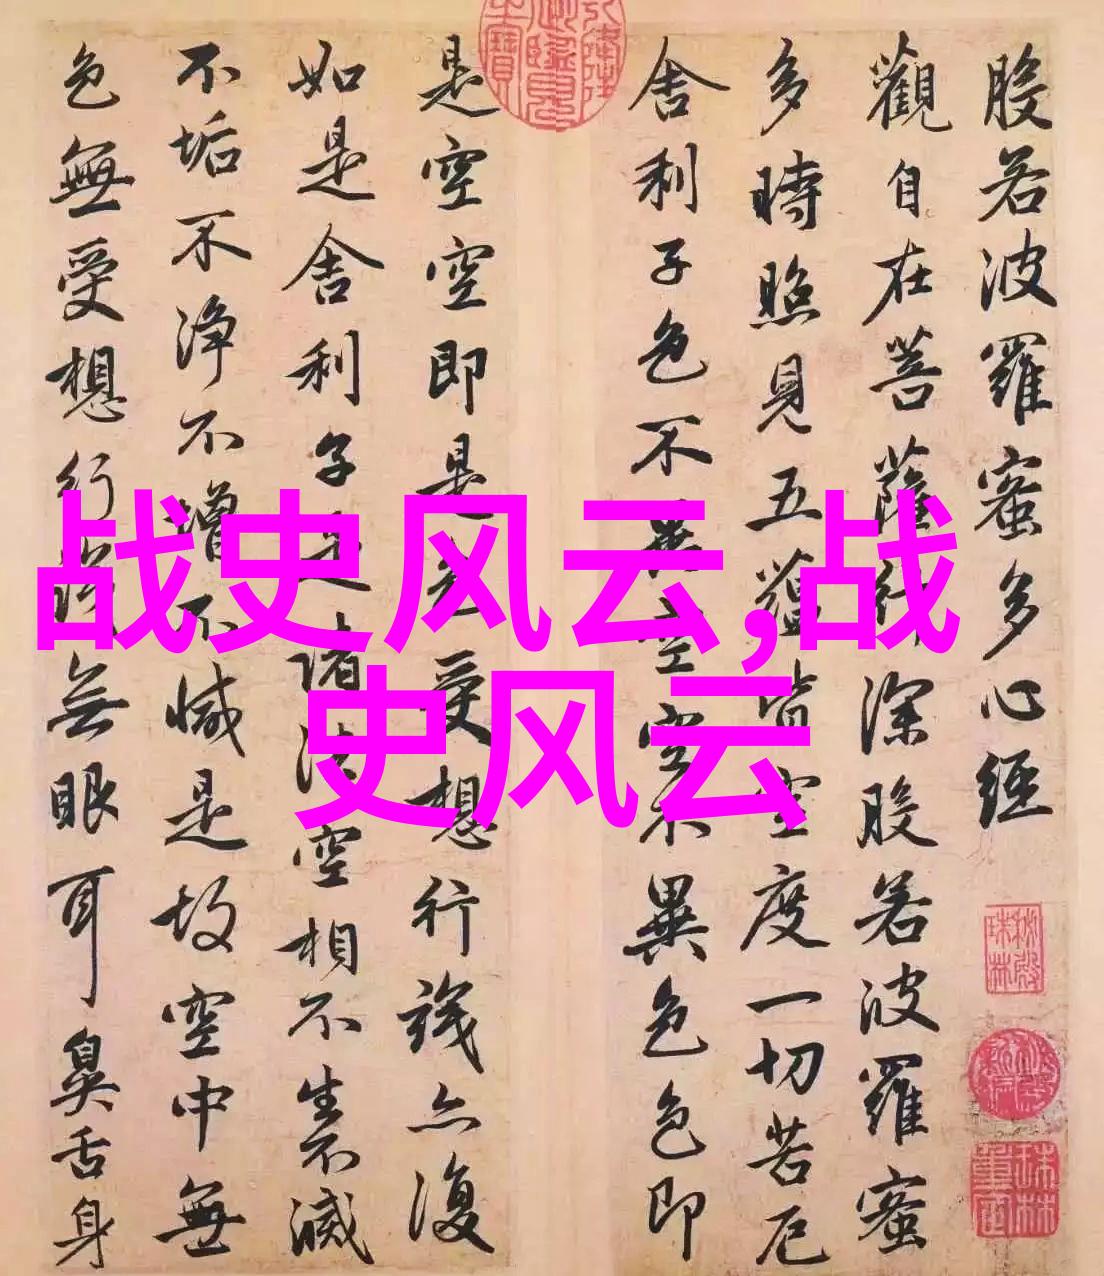 般若波羅蜜多心經
觀自在菩薩行深般若波羅蜜
多時照見五蘊皆空度一切苦厄
舍利子色不異空空不異色色即
是空空即是色受想行識亦復
如是舍利子是諸法空相不生不滅
不垢不淨不增不減是故空中無
色無受想行識無眼耳鼻舌身
战史风云,战
史风云